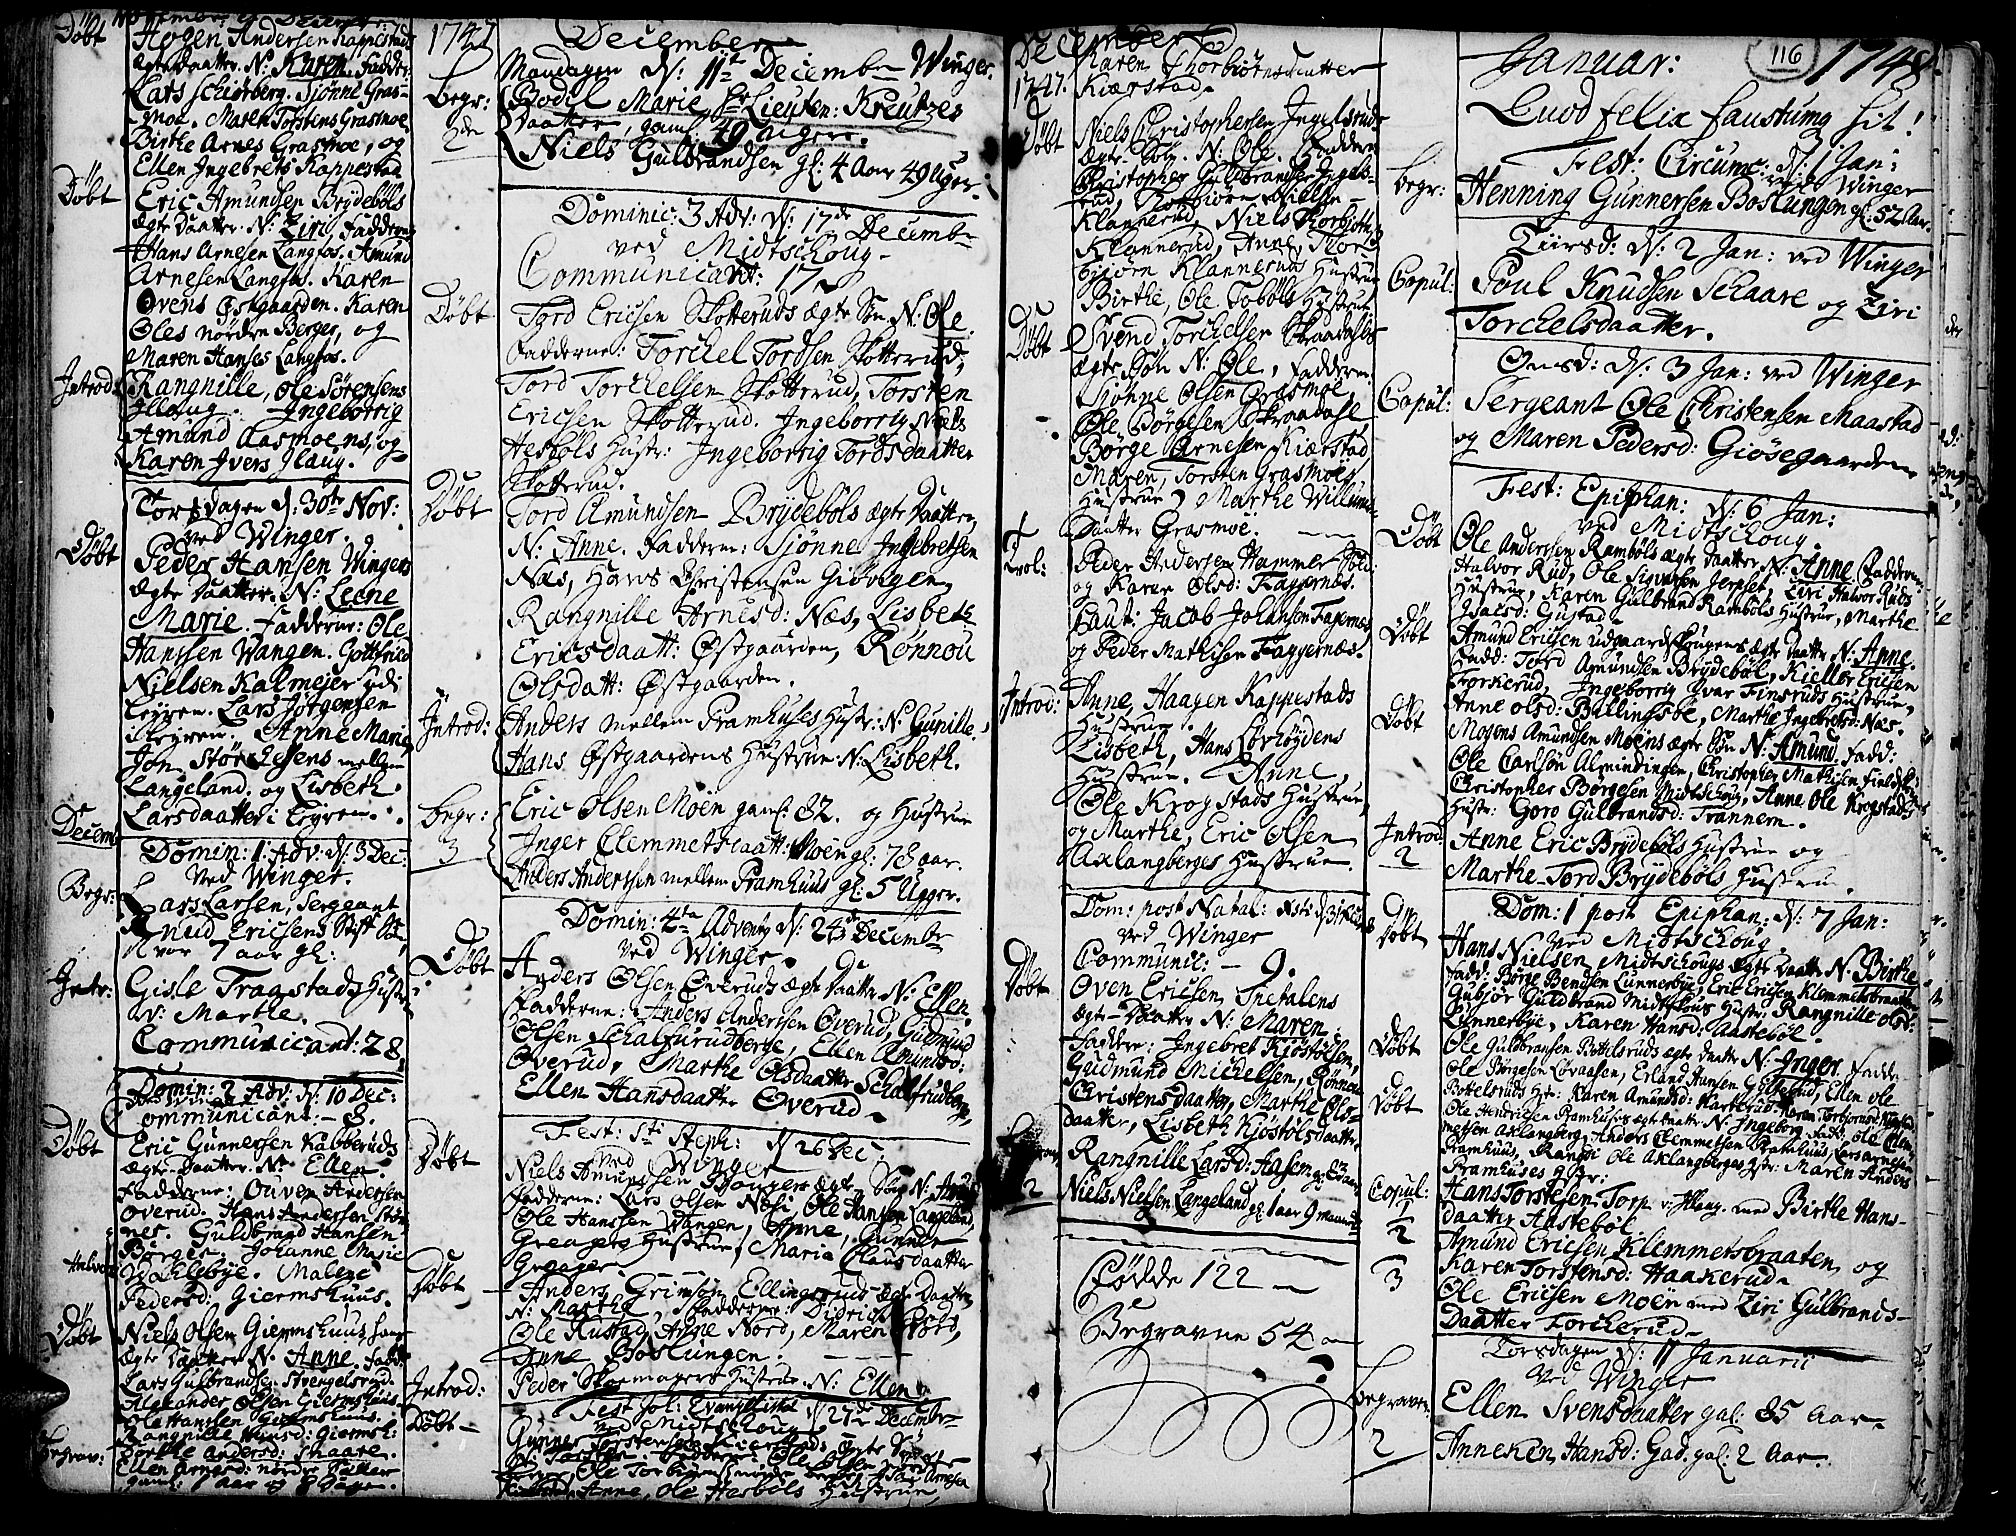 Novemb: & December
Døbt
Hogen Andersen Kappestads
ægte Daatter. N: Karen. Fadder:
Lars Schiørberg. Sjønne Gras-
moe. Mareh Torstens Grasmoe
Birthe Arnes Grasmoe, og
Ellen Ingebrets Kappestad
Døbt
Eric Amundsen Brydebøls
ægte Daatter. N: Ziri. Fadderne
Hans Arnesen Langfos. Amund
Arnesen Langfos. Karen
Ovens Østgaarden. Karen
Oles nordre Berger, og
Maren Hanses Langfos.
Introd:
Rangnille, Ole Sørensens
Illaug. Ingeborrig
Amund Aasmoens, og
Karen Ivers Ilaug.
Torsdagen d: 30te Nov:
ved Winger.
Døbt
Peder Hansen Wingers
ægte Daatter. N: Leene
Marie. Fadderne: Ole
Hanssen Wangen. Gottfried
Nielsen Kalmejer udi
Leyren. Lars Jørgensen
Leyren. Anne Marie
Jon Størchesens mellem
Langeland. og Lisbeth
Larsdaatter i Leyren.
Decemb
Domin: 1. Adv: d: 3 Dec:
Ved Winger.
Begr:
Lars Larsen, Sergeant
Knud Ericsens Stif Sø
hvor 7 aar gl:
Intr:
Gisle Tragstads Hustr
N: Marthe.
Communicant: 28
Domin: 2 Adv: d: 10 Dec:
Communicant: - 8.
Døbt
Eric Gunnersen Kabberuds
ægte Daatter. N: Ellen
Fadderne: Ouven Andersen
Overud. Hans Andersen Stør
nes. Guldbrand Hansen
Børger. Johanne Marie
Wachlebye. Malene
Pedersd: Giermshuus.
Døbt
Niels Olsen Giermshuus hans
ægte Daatter N: Anne. Fadd:
Lars Gulbrandsen Strengelsrud.
Alexander Olsen Giermshuus.
Ole Hansen Giermshuus.
Rangnille Hansd: Giermsh:
Dorthe Andersd: Skaare
Begrav:
Ellen Arnesd: nordre Fuller
gaml: 1 aar og 8 Dage.
1747
December
Mandagen d: 11te Decembr Winger.
Begr:
2de
Bodil Marie Hr Lieuten: Kreutzes
Daatter, gaml: 49 Uger.
Niels Gulbrandsen gl: 4 Aar 49 Uger.
Dominic: 3 Adv: d: 17de Decembr
ved Midtschoug
Communicant: 17
Døbt
Tord Ericsen Skotteruds ægte Søn N: Ole
Fadderne: Torchel Tordsen Skotterud,
Tord Torchelsen Skotterud, Torsten
Ericsen Skotterud. Ingeborrig Niels
Hesbøls Hustr: Ingeborrig Tordsdaatter
Skotterud.
Døbt
Tord Amundsen Brydebøls ægte Daatter
N: Anne. Fadderne: Sjønne Ingebretsen
Næs, Hans Christensen Giøvigen,
Rangnille Arnesd: Næs, Lisbet
Ericsdaatt: Østgaarden, Rønnou
Olsdatt: Østgaarden.
Introd:
Anders mellem Pramhuses Hustr: N: Gunille.
Hans Østgaardens Hustrue: N: Lisbeth.
Begr:
3
Eric Olsen Moen gaml: 82. og Hustrue
Inger Clemmetsdaatt: Moen gl: 78 aar.
Anders Andersen mellem Pramhuus gl: 5 Uger.
Domin: 4ta Adventg d: 24de Decembr
ved Winger.
Døbt
Anders Olsen Overuds ægte Daatter N: Ellen.
Fadderne: Anders Andersen Overud, Gudmund
Olsen Schalfurudberge, Ellen Amundsd:
Overud, Marthe Olsdaatter Schalfrudberge,
Ellen Hansdaatter Overud.
Fest: Sti Steph: d 26 Dec:
ved Winger
Døbt
Niels Amundsen ægte Søn N: Arne
Fadderne: Lars Olsen Næsi, Ole Hansen Langeland,
Ole Hanssen Wangen, Anne, Gunner
Greagers Hustrue, Maria Clausdaatter
Greager.
Døbt
Anders Grimsøn Ellingsrud ægte Daatter
N: Marthe, Fadderne: Didrich Nord,
Ole Rustad, Anne Nord, Maren Nord,
Anne Boslungen.
Introd:
Peder Skoemagers Hustrue N: Ellen
Fest Joh: Evangelistæ d 27de Decembr
ved Midtschoug
Døbt
Gunner Torstensen Kierstad: ægte Søn
N: Torsten. Fadderne: Ole Olsen nordre
Berger, Ole Torbiørnsen nordre Berger, Arnesen
Kierstad, Anne, Ole Hasbøls Hustrue,
December
1747.
Karen Thorbiørnsdaatter
Kiærstad.
Døbt
Niels Christophersen Ingelsruds
ægte Søn. N: Ole. Faddern
Christopher Guldbrandsen Ingels-
rud, Torbiørn Nielsen
Klannerud, Niels Torbjørn:
Klannerud, Anne, Thor
bjørn Klanneruds Hustrue
Birthe, Ole Tobøls Hustrue
Døbt
Svend Torchelsen Skraadahls
ægte Søn N: Ole, Faddern:
Sjønne Olsen Grasmoe,
Ole Børgesen Skraadahl,
Børge Arnesen Kiærstad,
Maren, Torsten Grasmoes
Hustrue, Marthe Willums
daatter Grasmoe.
Trol:
Peder Andersen Hammer Sold:
og Karen Olsd: Faggernæs.
Caut: Jacob Johansen Fagernæs
og Peder Mathisen Faggernæs.
Introd:
Anne, Haagen Kappestads
Hustrue.
Lisbeth, Hans Løvhøydens
Hustrue. Anne,
Ole Krogstads Hustrue
og Marthe, Eric Olsen
Axlangberges Hustrue
Dom: post Natal: Xsti d: 31 Dec:
ved Winger
Communic: - 9.
Døbt
Oven Ericsen Snetalens
ægte Daatter N: Maren.
Faddere: Ingebret Kjøstølsen,
Gudmund Michelsen, Rønnou
Christensdaatter, Marthe Ols-
daatter, Lisbeth Kjøstølsdaatter,
2
Rangnille Larsd: Aasem gl: 83 aar
Niels Nielsen Langeland gl: 1 aar 9 maaned
Fødde 122
Begravne 54
Januar:
116
1748.
Quod felix faustumq sit!
Fest: Circumc: d: 1 Jan:
ved Winger
Begr:
Henning Gunnersen Boslungen gl: 52 Aar.
Tiirsd: d: 2 Jan: ved Winger
Copul:
Poul Knudsen Schaare og Ziri
Torchelsdaatter.
Onsd: d: 3 Jan: ved Winger
Copul:
Sergeant Ole Christensen Maastad
og Maren Pedersd: Giøsegaarden
Fest: Epiphan: d: 6 Jan:
ved Midtschoug.
Døbt
Ole Andersen Rambøls ægte Daatter N: Anne. Fadderne:
Halvor Rud, Ole Sigvarsen Jerpset, Ziri Halvor Ruds
Hustrue, Karen Gulbrand Rambøls Hustrue, Marthe
Isacsd: Gustad.
Døbt
Amund Ericsen udgaardskougens ægte Daatter N: Anne.
Fadd: Tord Amundsen Brydebøl, Kield Ericsen
Torkerud, Ingeborrig Ivar Finsruds Hustrue,
Anne Olsd: Bellingsbøe, Marthe Ingebretsd: Næs.
Døbt
Mogens Amundsen Moens ægte Søn N: Amund, Fadd:
Ole Carlsøn Almindingen, Christopher Mathisen
Christopher Børgesen Midtschoug, Anne Ole Krogstads
Hustr: Goro Gulbrandsd: Trannem.
Introd:
2
Anne Eric Brydebøls Hustrue og
Marthe Tord Brydebøls Hustrue.
Dom: 1 post Epiphan: d: 7 Jan:
ved Midtschoug.
Døbt
Hans Nielsen Midtschougs ægte Daatter N. Birthe
Fadd: Børge Bendsen Lunnerbye, Eric Ericsen Klemmetsbraaten
Gubjør Guldbrand Midtskougs Hustr: Rangnille Olsd:
Lunnerbye, Karen Hansd: Aastebøl.
Døbt
Ole Guldbransen Bottelsruds ægte Daatter N. Inger. Fadd:
Ole Børgesen Løvaasen, Erland Hansen Gystelrud, Ellen Ole
Bottelsruds Hst: Karen Amundsd: Karterud. Karen Torbjørnsd:
Døbt
Ole Hendricsen Pramhuses ægte Daatter N. Ingeborg Fadd: Ole Clem
metsen Axlangberg, Anders Clemmetsen Pramhuus, Lars Arnesen
Pramhuus, Rangni Ole Axlangberges Hstr: Maren Anders
Pramhuses Hstr:
Copul:
1
Hans Torstesen Torp v: Illaug. med Birthe Hans-
daatter Aastebøl
2
Amund Ericsen Klemmetsbraaten, og
Karen Torstensd: Haakerud
3
Ole Ericsen Moen med Ziri Gulbrands-
Daatter Torcherud
Torsdagen d: 11 Januarii
Ved Winger
Begraven:
2
Ellen Svensdaatter gal: 85 Aar
Anneken Hansd: Gad. gal: 2 Aar.